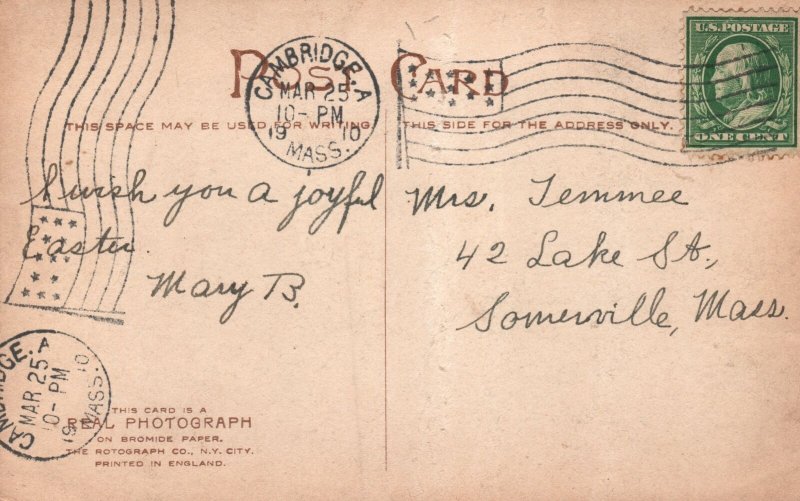 POST CARD
CAMBRIDGE. A
MAR 25
10-PM
19 10
MASS.
U.S. POSTAGE
ONE CENT
THIS SPACE MAY BE USED FOR WRITING
THIS SIDE FOR THE ADDRESS ONLY.
I wish you a joyful
Easter.
Mary B.
Mrs. Temmee
42 Lake St.,
Somerville, Mass.
CAMBRIDGE. A
MAR 25
10-PM
19 10
MASS.
THIS CARD IS A
REAL PHOTOGRAPH
ON BROMIDE PAPER.
THE ROTOGRAPH CO., N.Y. CITY.
PRINTED IN ENGLAND.